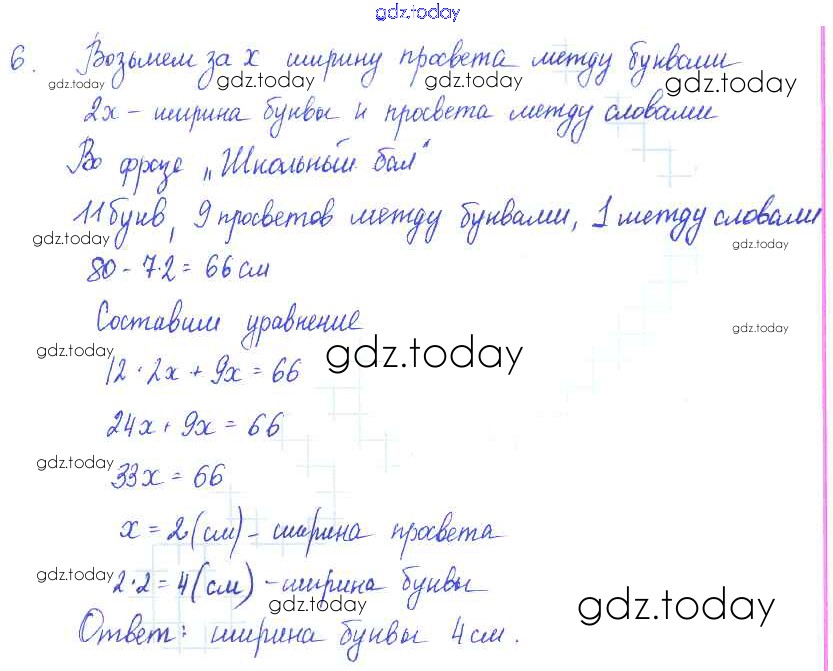 gdz.today
6. Возьмем за x ширину просвета между буквами
gdz.today gdz.today gdz.today gdz.today
2x – ширина буквы и просвета между словами
Во фразе „Школьный бал“
11 букв, 9 просветов между буквами, 1 между словами
gdz.today gdz.today
80 - 7·2 = 66 см
Составим уравнение
gdz.today gdz.today gdz.today
12 · 2x + 9x = 66
24x + 9x = 66
gdz.today
33x = 66
x = 2 (см) – ширина просвета
gdz.today
2·2 = 4 (см) – ширина буквы
gdz.today gdz.today
Ответ: ширина буквы 4 см.